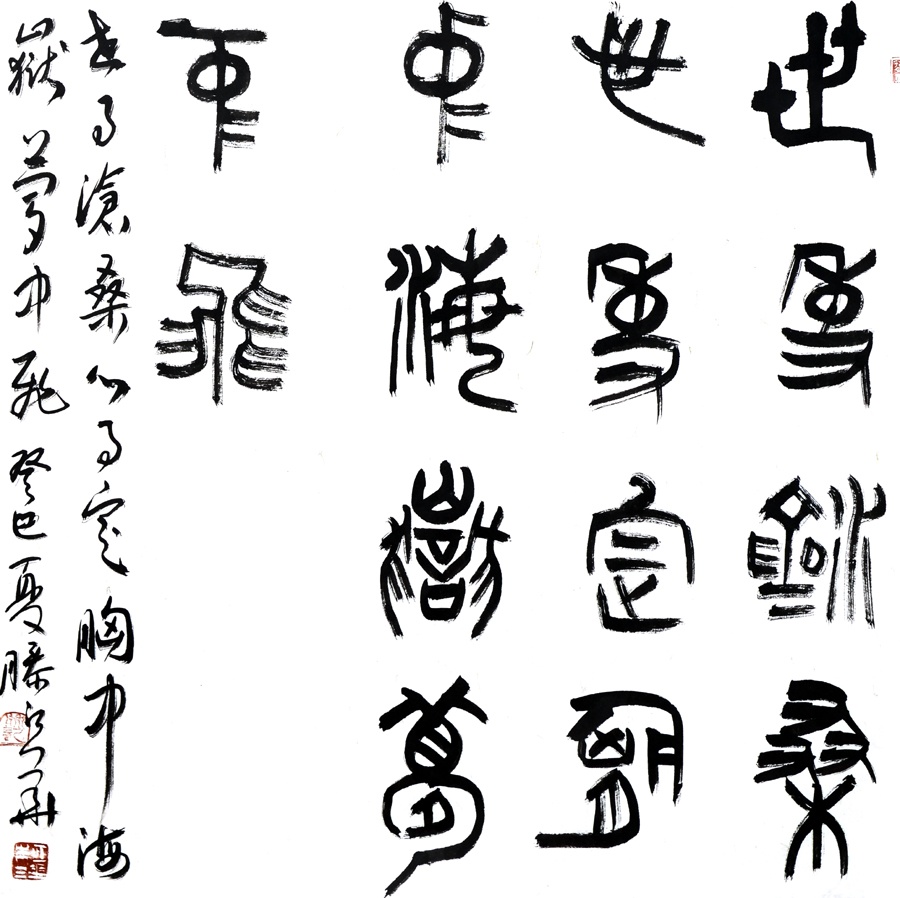 世事滄桑
心事定胸
中海嶽夢
中飛
世事滄桑心事定胸中海
嶽夢中飛癸巳夏滕